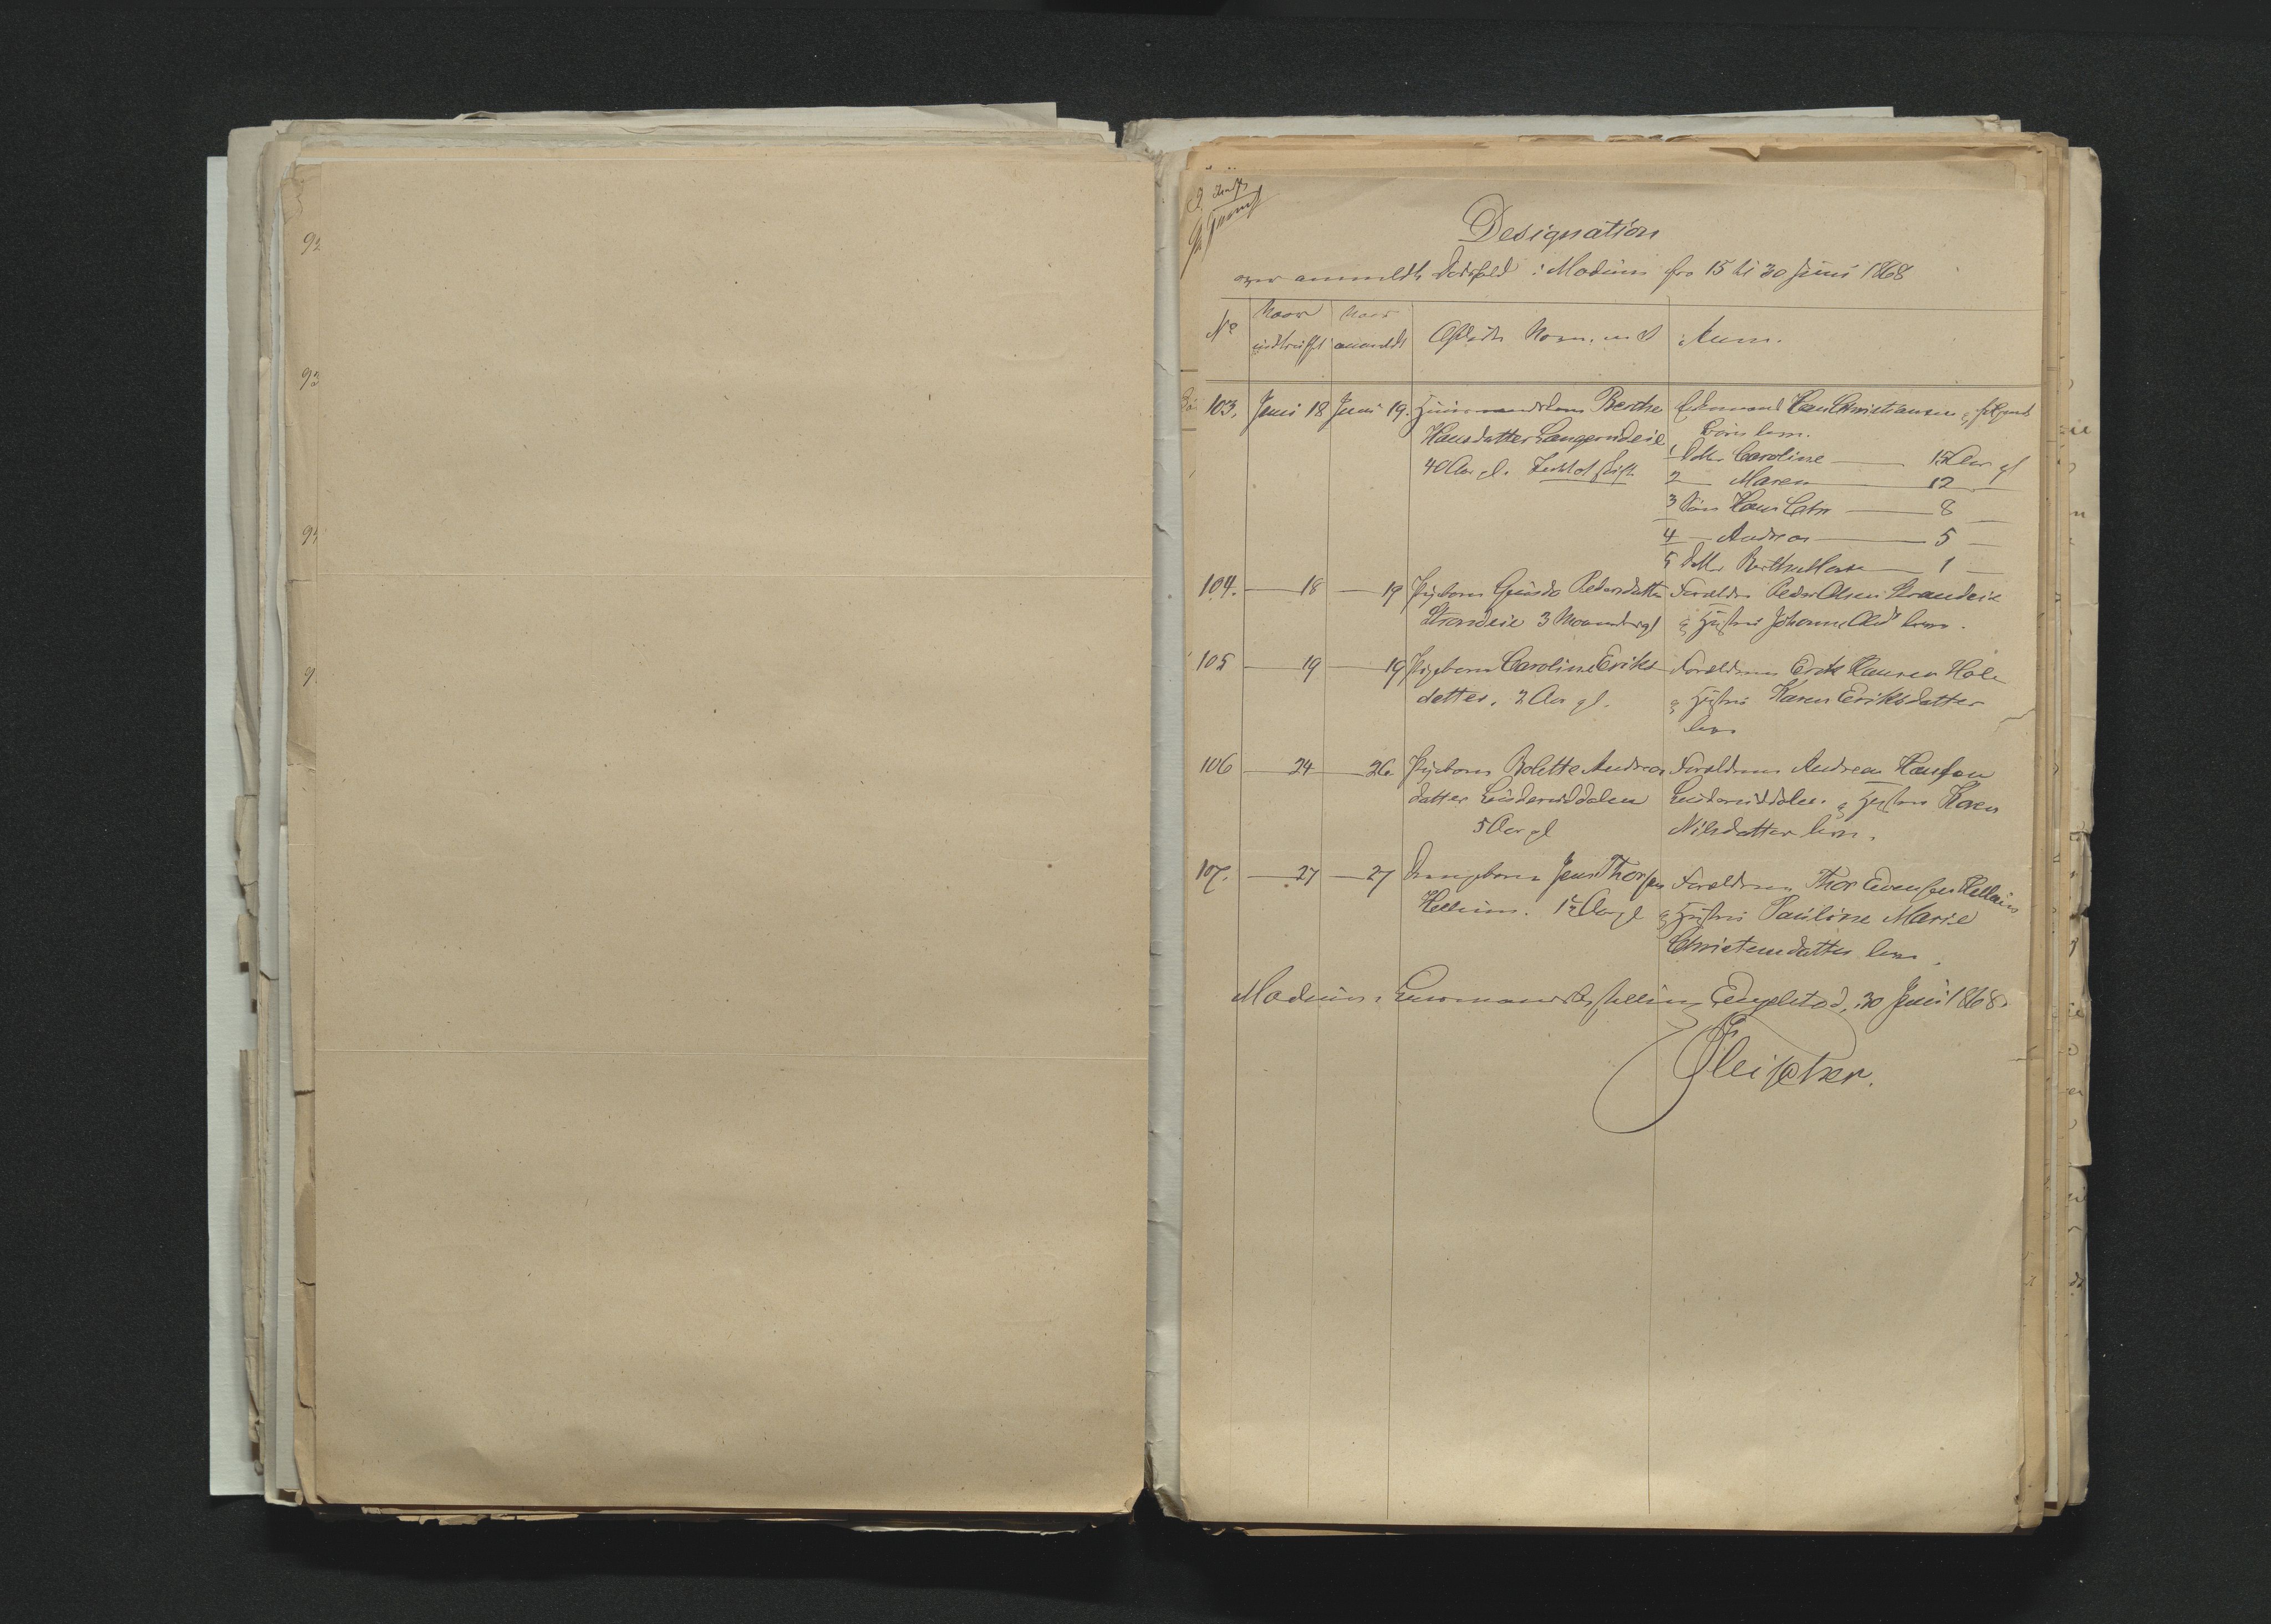 Designation
over anmeldte Dødsfald i Modum fra 15 til 30 Juni 1868
No
Naar indtruffet
Naar anmeldt
Afdødes Navn, m.v.
Anm.
103. Juni 18 Juni 19. Huusmandskone Berthe
Hansdatter Langerudeie
40 Aar gl.
Enkemand Hans Christiansen og følgende
Børn lever.
1 Datter Caroline — 15 Aar gl
2 — Maren — 12 —
3 Søn Hans Chr — 8 —
4 — Andreas — 5 —
5 Datter Berthe Marie — 1 —
104. — 18 — 19 Pigebarn Gunda Pedersdatter
Strandeie 3 Maaneder gl
Forældre Peder Olsen Strandeie
og Hustru Johanne Olsd. lever.
105 — 19 — 19 Pigebarn Caroline Eriks
datter, 2 Aar gl.
Forældrene Erik Hansen Hole
og Hustru Karen Eriksdatter
lever
106 — 24 — 26 Pigebarn Bolette Andreas
datter Linderuddalen
5 Aar gl
Forældrene Andreas Hansen
Linderuddalen og Hustru Karen
Nilsdatter lever.
107. — 27 — 27 Drengebarn Jens Thorsen
Hellum. 1½ Aar gl
Forældrene Thor Evensen Hellum
og Hustru Pauline Marie
Christensdatter lever.
Modums Lensmandsbestilling Engelstad, 30 Juni 1868.
Fleischer.
92
93